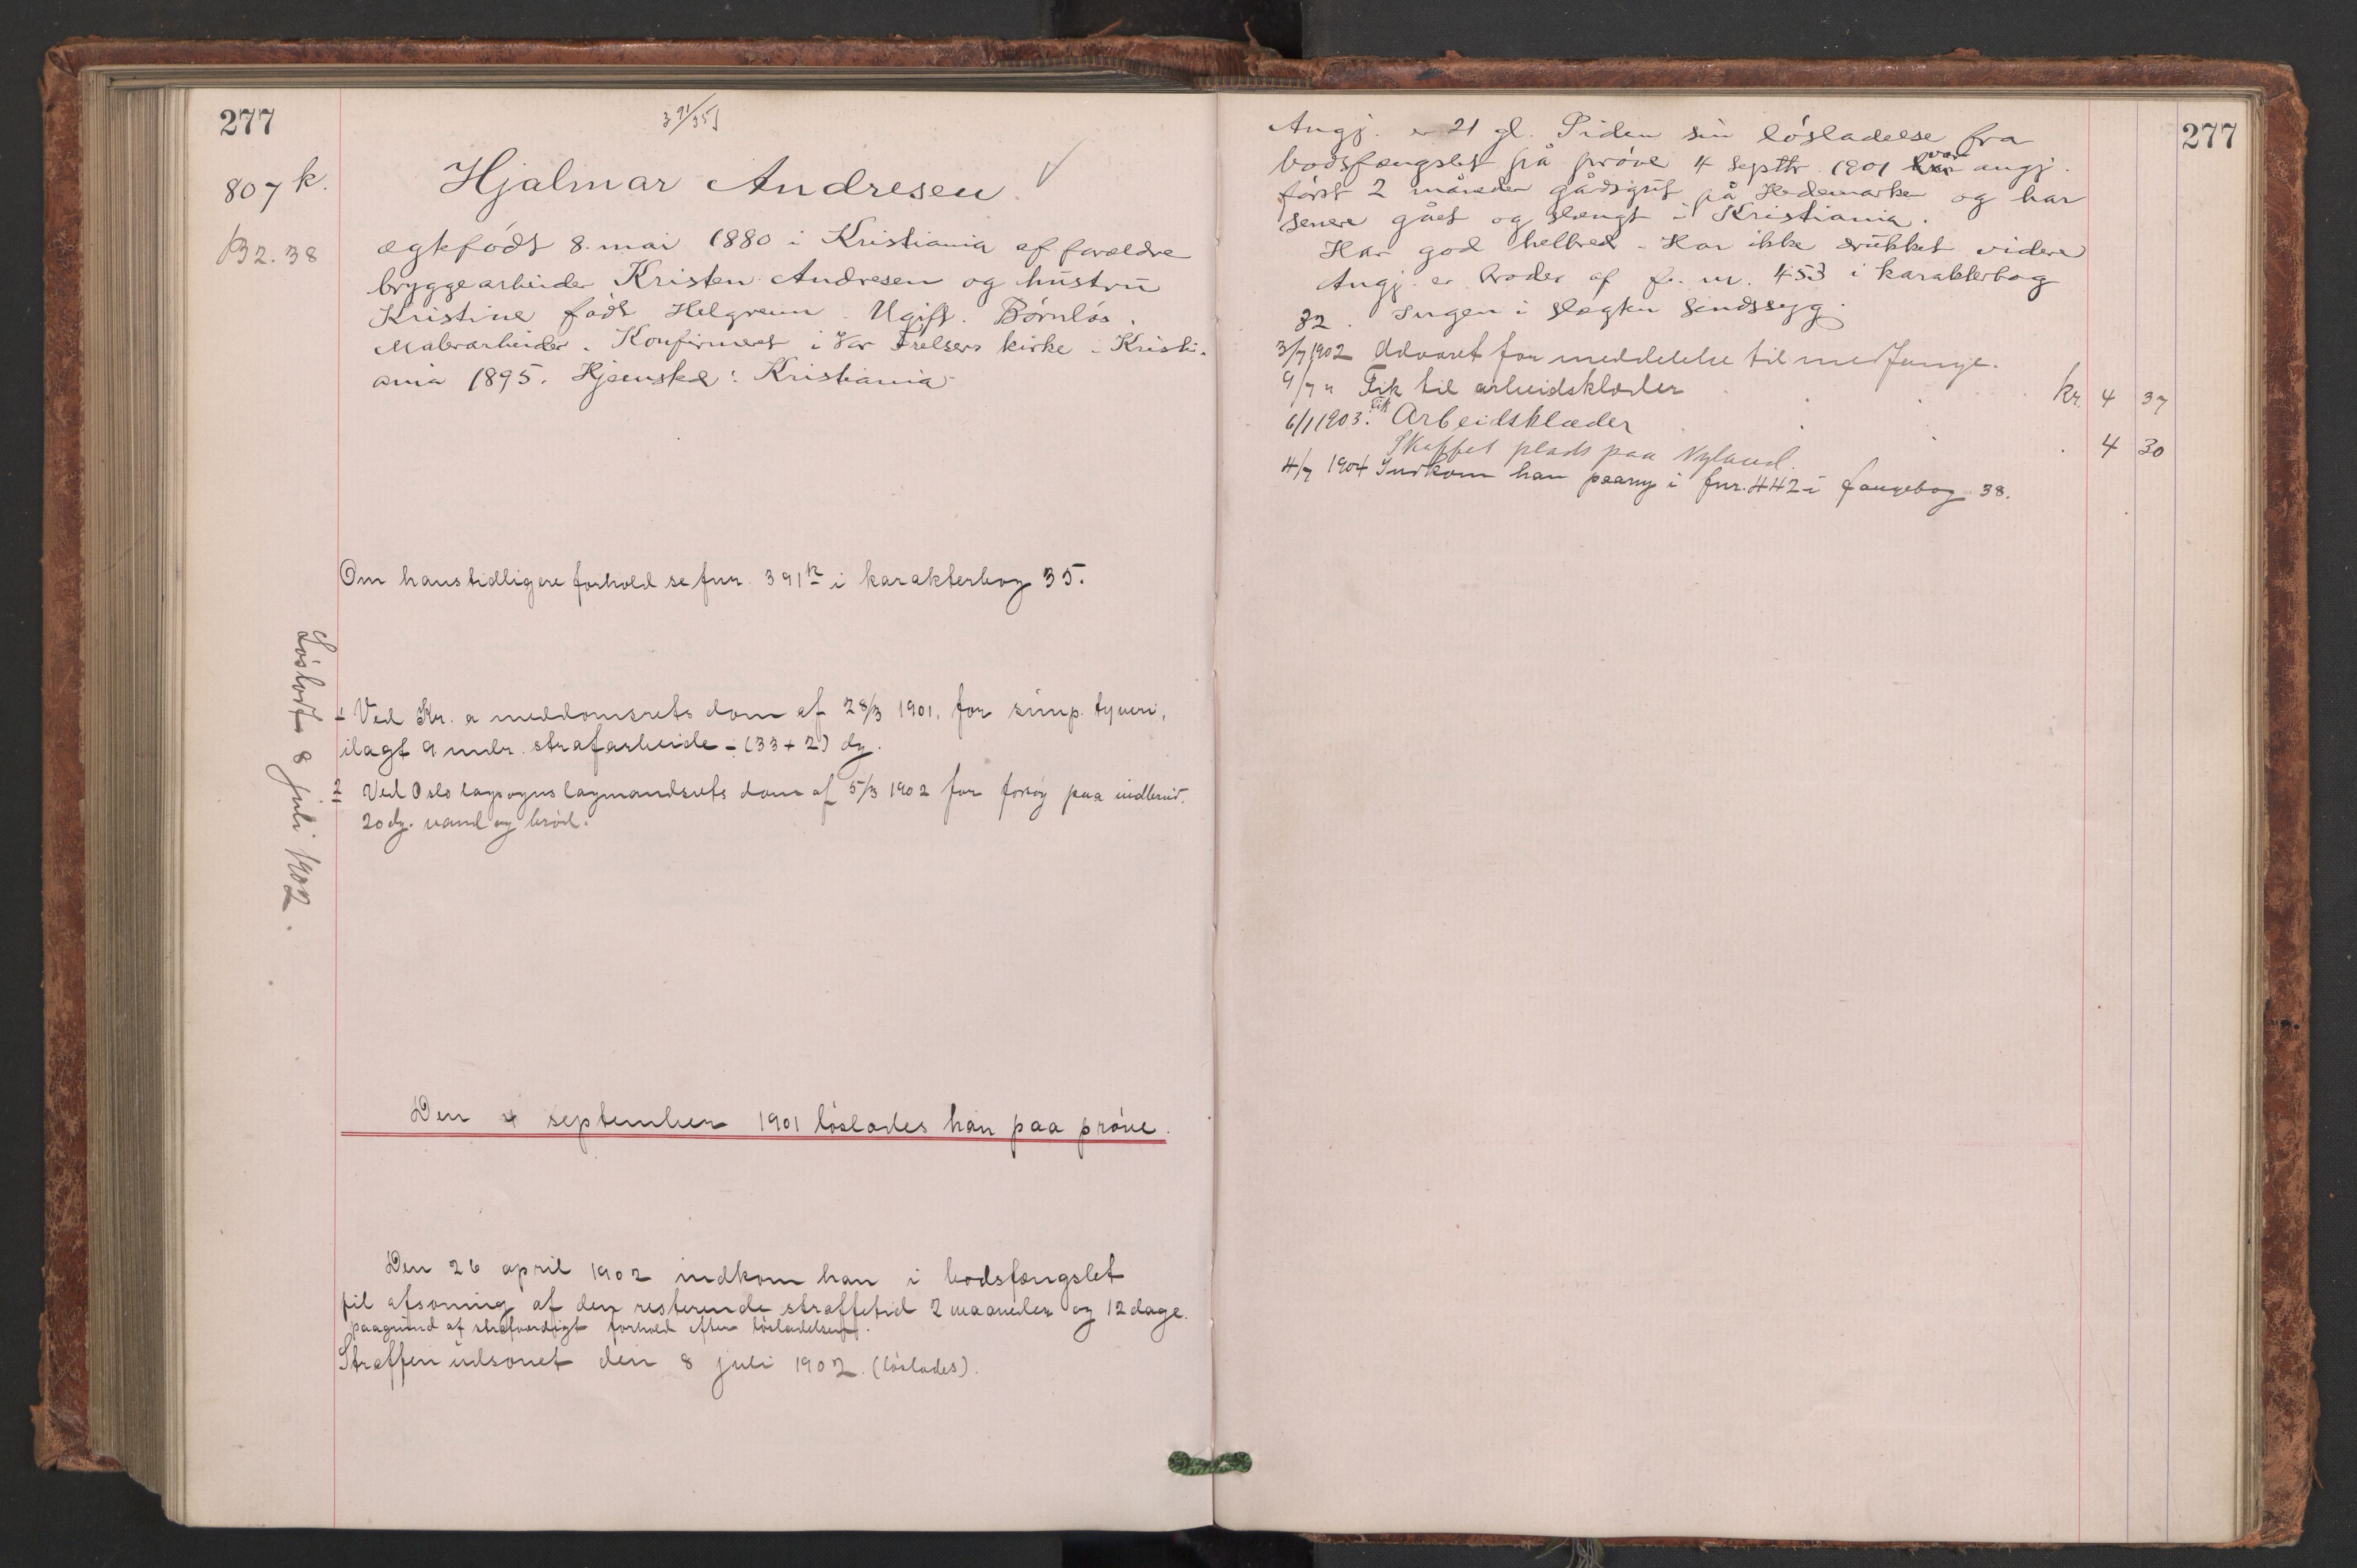 277
391/35
807 k.
Hjalmar Andresen
B2.38
ægtefödt 8. mai 1880 i Kristiania af forældre
bryggearbeider Kristen Andresen og hustru
Kristine födt Helgrenn. Ugift. Börnlös.
Malerarbeider. Konfirmeret i Vor Frelsers kirke i Kristi-
ania 1895. Hjemsted: Kristiania
Om hans tidligere forhold se fnr. 391k i karakterbog 35.
Lösladt 8 juli 1902.
1 Ved Kr.a meddomsrets dom af 28/3 1901, for simp. tyveri,
ilagt 9 mdr. strafarbeide - (33+2) dg.
2 Ved Oslo lagsogns lagmandsrets dom af 5/3 1902 for forsög paa indbrud.
20 dg. vand og bröd.
Den 4 september 1901 löslades han paa pröve.
Den 26 april 1902 indkom han i bodsfængslet
til afsoning af den resterende straffetid 2 maaneder og 12 dage.
paagrund af strafværdigt forhold efter lösladelsen.
Straffen udsonet den 8 juli 1902. (löslades).
277
Angj. er 21 gl. Siden sin lösladelse fra
bodsfængslet på pröve 4 septbr 1901 var angj.
först 2 måneder gårdsgut på Hedemarken og har
senere gået og slængt i Kristiania.
Har god helbred. Har ikke drukket videre
Angj. er broder af f. nr. 453 i karakterbog
32. Ingen i slægten sindssyg.
3/7 1902 Advaret for meddelelse til medfange.
9/7 " Fik til arbeidsklæder kr. 4 37
6/1 1903. Fik Arbeidsklæder 4 30
Skaffet plads paa Nyland.
4/7 1904 Indkom han paany i fnr. 442 i fangebog 38.